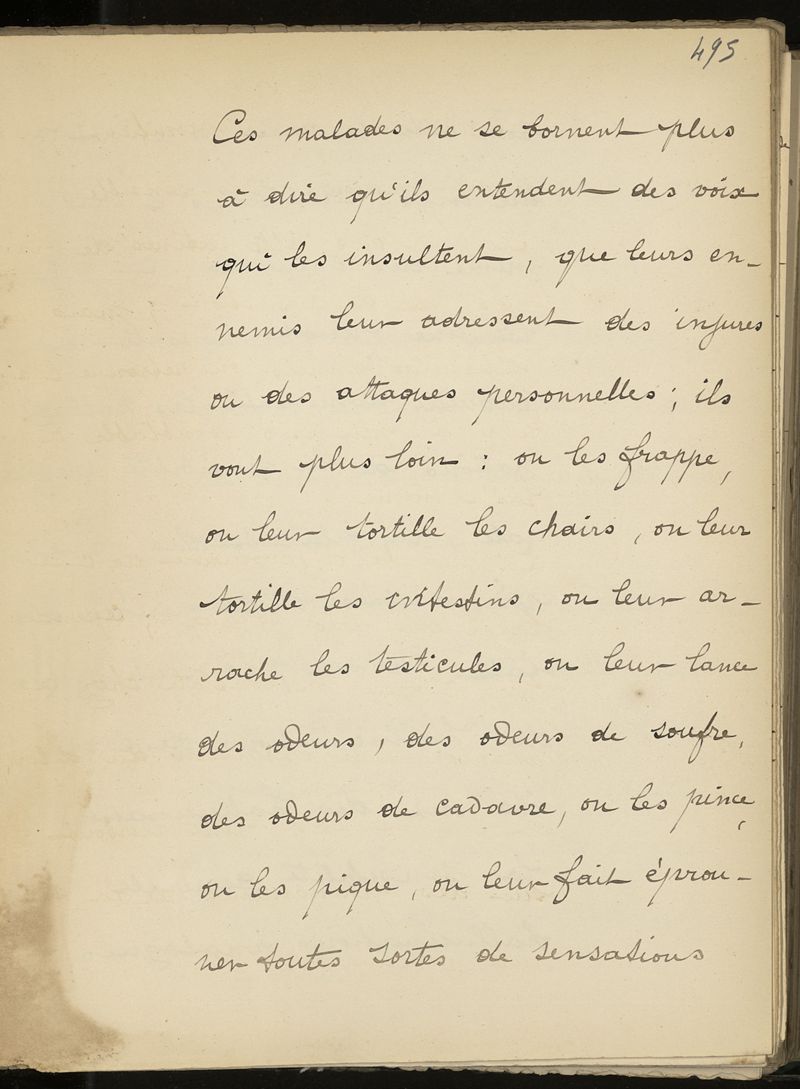 495
Ces malades ne se bornent plus
à dire qu'ils entendent des voix
qui les insultent, que leurs en-
nemis leur adressent des injures
ou des attaques personnelles; ils
vont plus loin : on les frappe,
on leur tortille les chairs, on leur
tortille les intestins, on leur ar-
rache les testicules, on leur lance
des odeurs, des odeurs de soufre,
des odeurs de cadavre, on les pince,
on les pique, on leur fait éprou-
ver toutes sortes de sensations